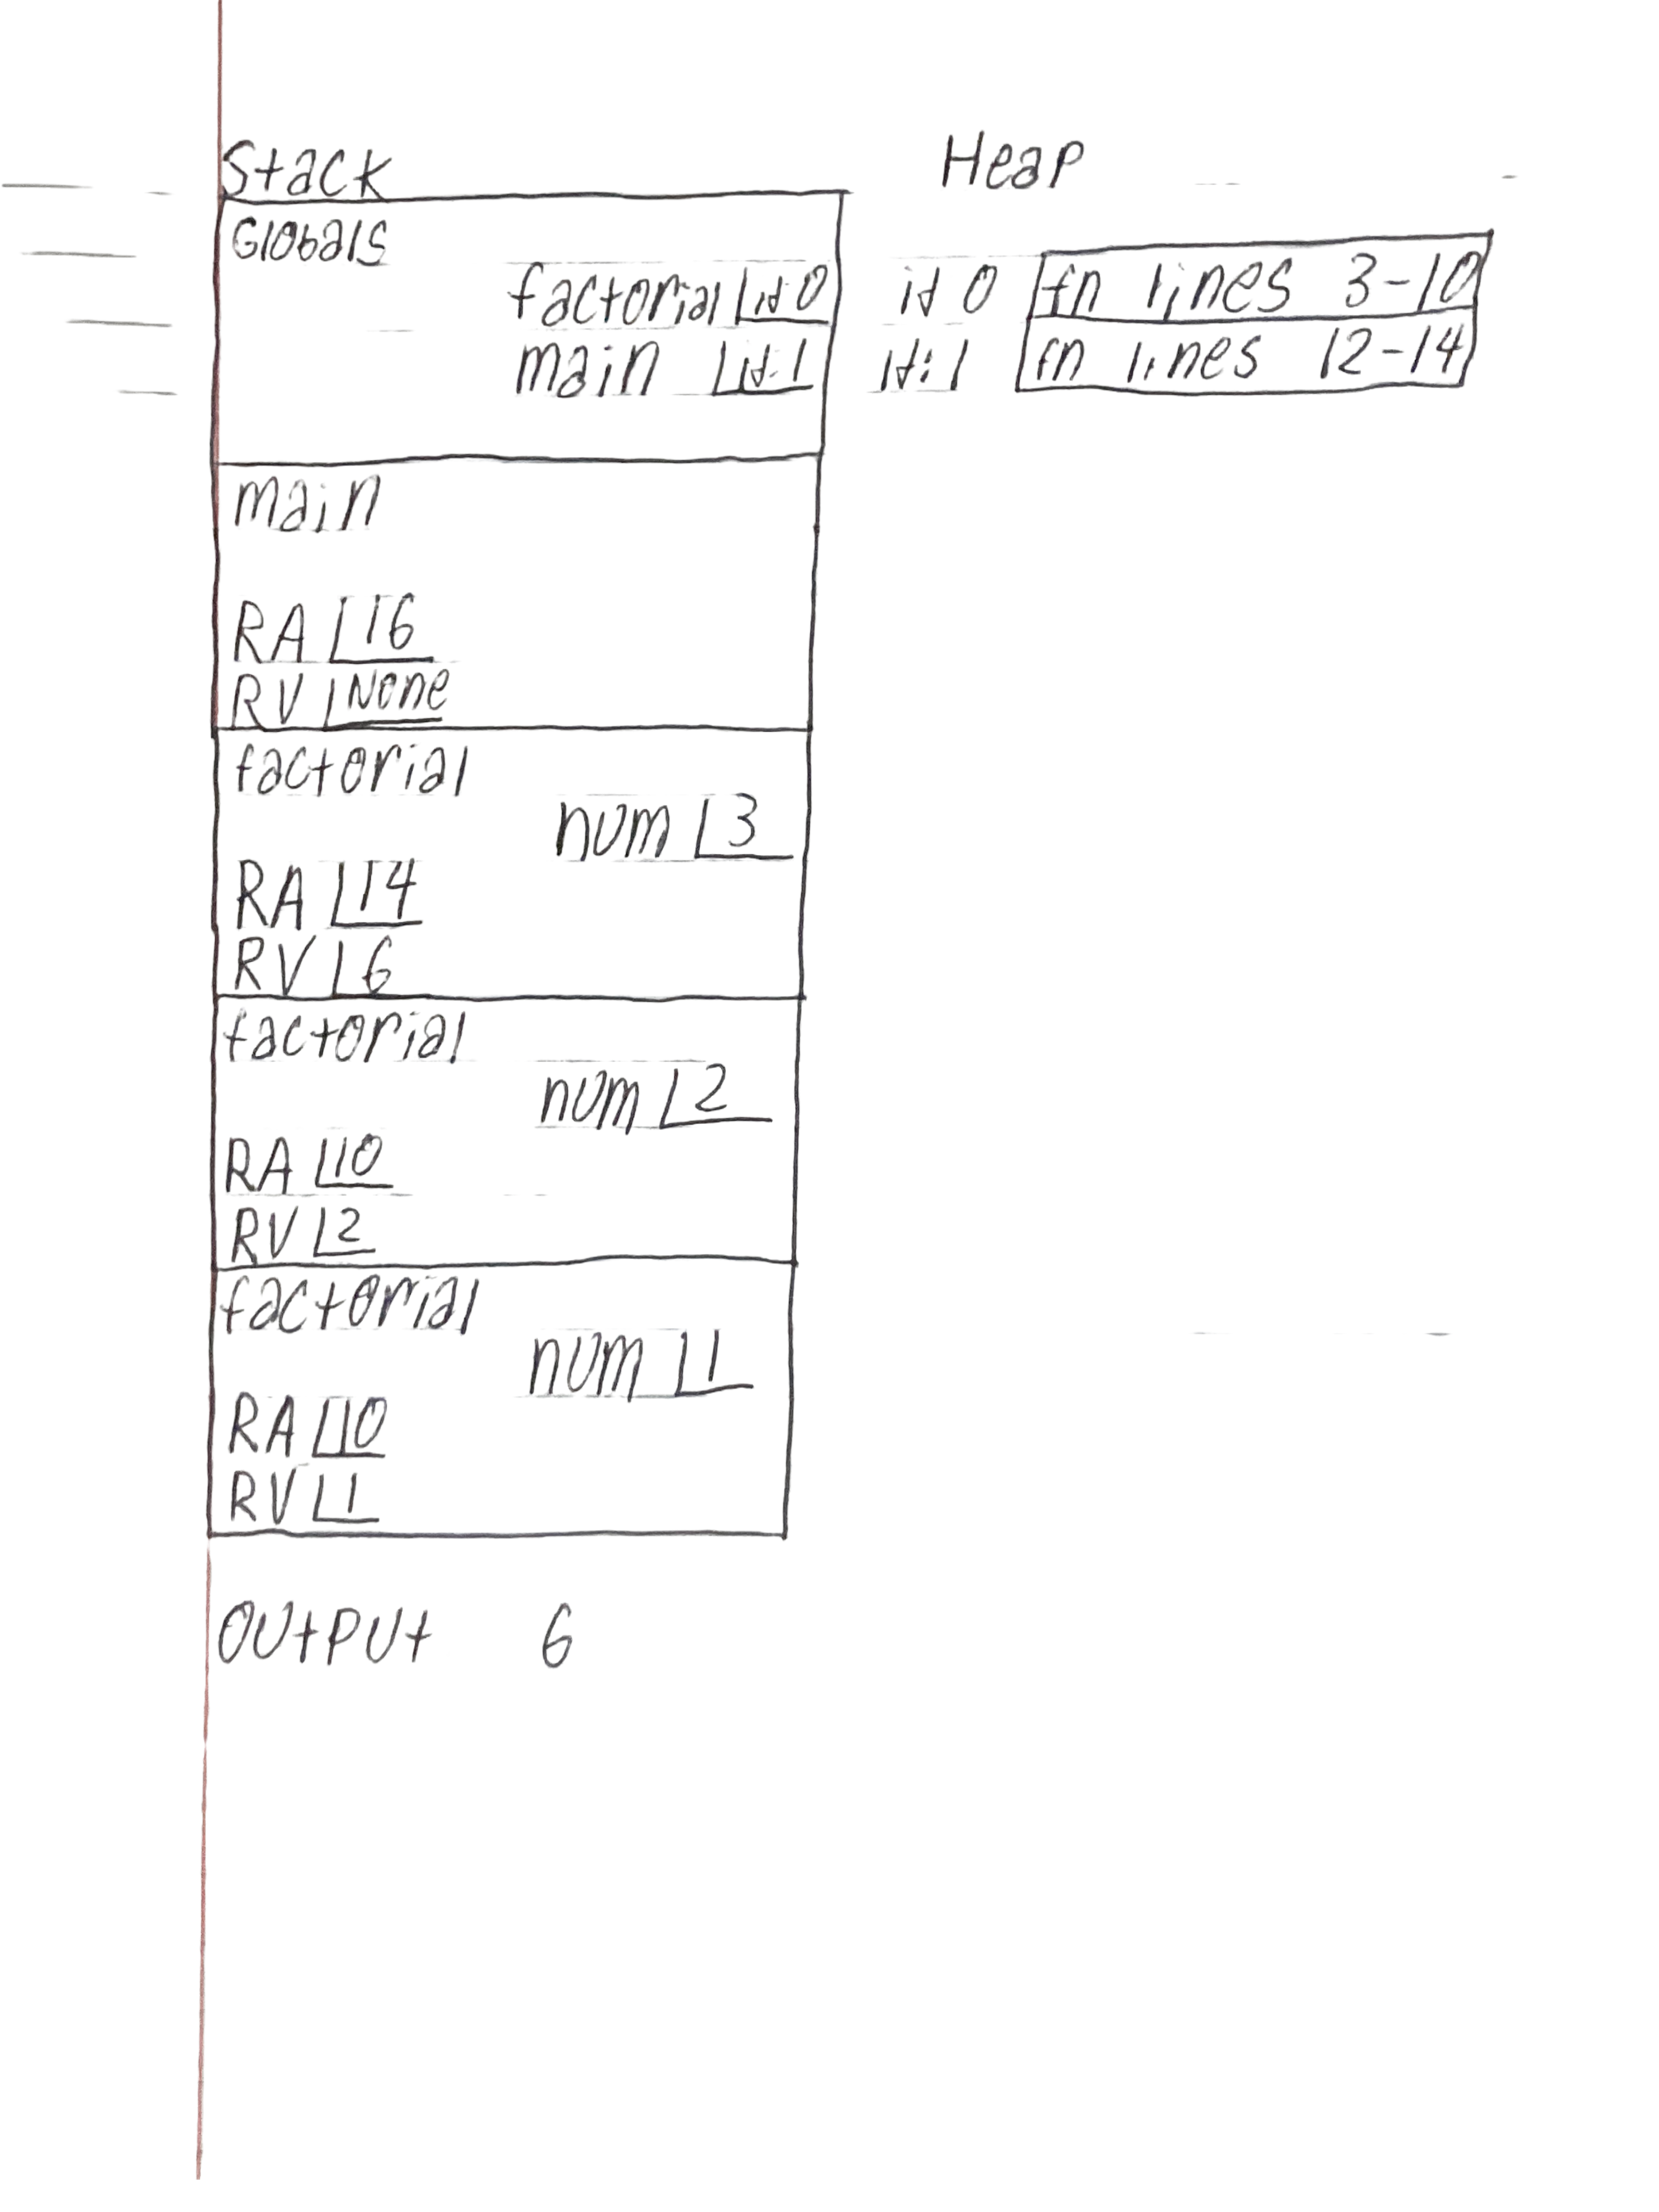 Stack Heap
Globals
factorial id:0 id 0 fn lines 3-10
main id:1 id:1 fn lines 12-14
main
RA 16
RV None
factorial
num 3
RA 14
RV 6
factorial
num 2
RA 10
RV 2
factorial
num 1
RA 10
RV 1
Output 6